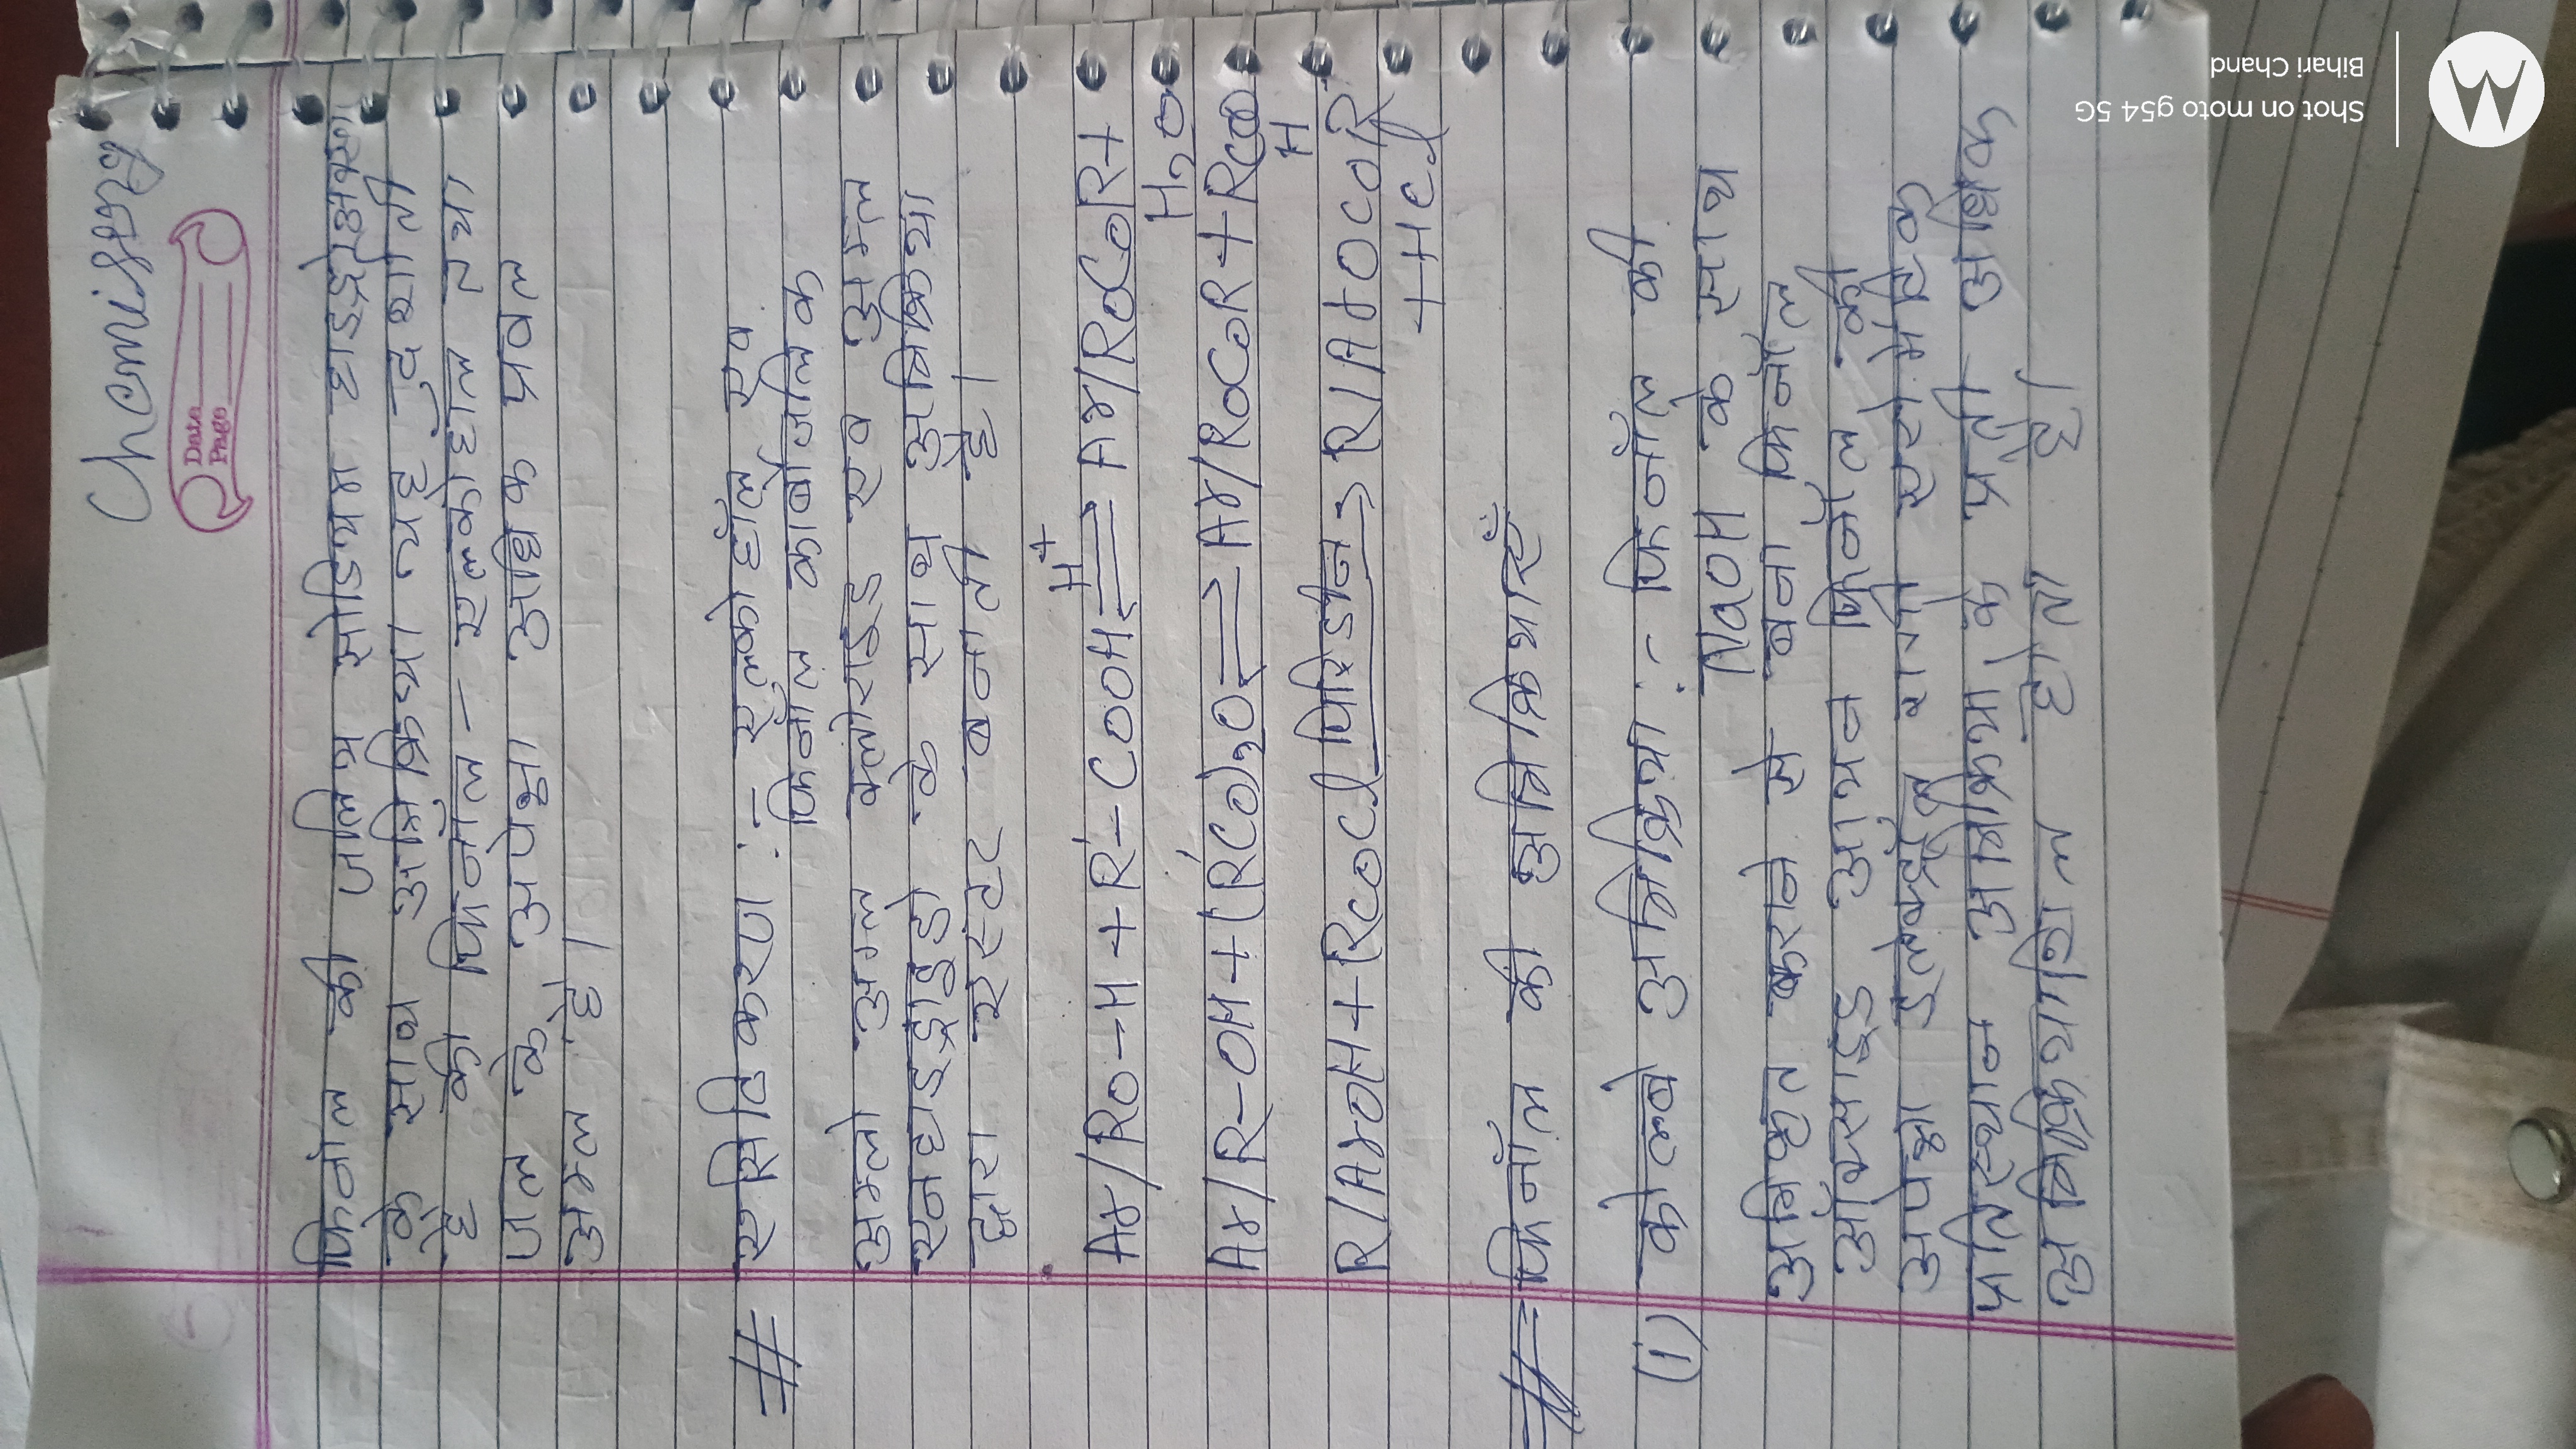 Chemistry
Date
Page
फिनॉल की जलिय सोडियम हाइड्रोक्साइड
के साथ अभिक्रिया यह दर्शाती
है की फिनॉल - एल्कोहाल तथा
जल के अपेक्षा अधिक प्रबल
अम्ल है।
# एस्टरिकरण :- एल्कोहॉल एव
फिनॉल कार्बोलिक
अम्लो अम्ल क्लोराइड एव अम्ल
एनहाइड्राइडो के साथ अभिक्रिया
द्वारा एस्टर बनाती है।
Ar/RO-H + R'-COOH ⇌ Ar/ROCOR +
H+
H2O
Ar/R-OH + (R'CO)2O ⇌ Ar/ROCOR + RCOO
H
R/ArOH + R'COCl पिरिडीन → R/ArOCOR'
+ HCl
# फिनॉल की अभिक्रियाएँ
(1) कोल्बे अभिक्रिया :- फिनॉल की
NaOH के साथ
अभिकृत कराने से बना फिनॉल
ऑक्साइड आयन फिनॉल की
अपेक्षा इलेक्ट्रॉन रागी एरोमैटिक
प्रतिस्थापन अभिक्रिया के प्रती अधिक
अभिक्रियाशिल होता है।
Shot on moto g54 5G
Bihari Chand